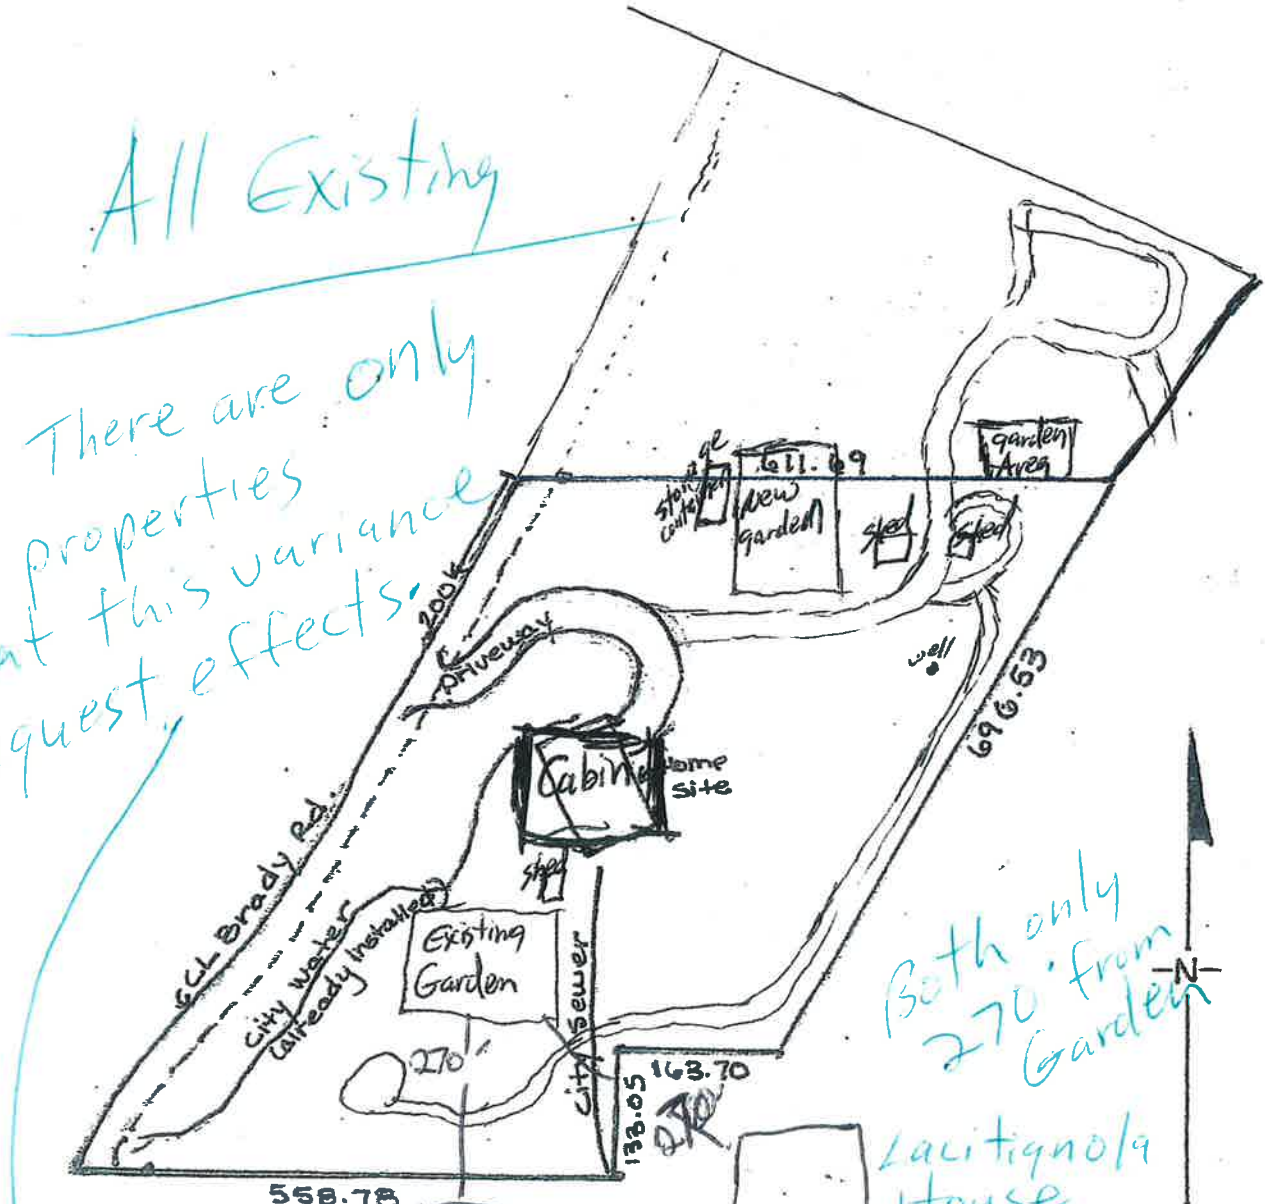 All Existing
There are only
properties
at this variance
quest effects.
garden
Area
611.69
New
garden
storage
shed
shed
200k
driveway
well
696.53
Cabin
Home
Site
shed
GCL Brady Rd.
City Water
(already installed)
Existing
Garden
City Sewer
270'
163.70
133.05
270'
558.78
Both only
270' from
Garden
N
Lacitignola
House